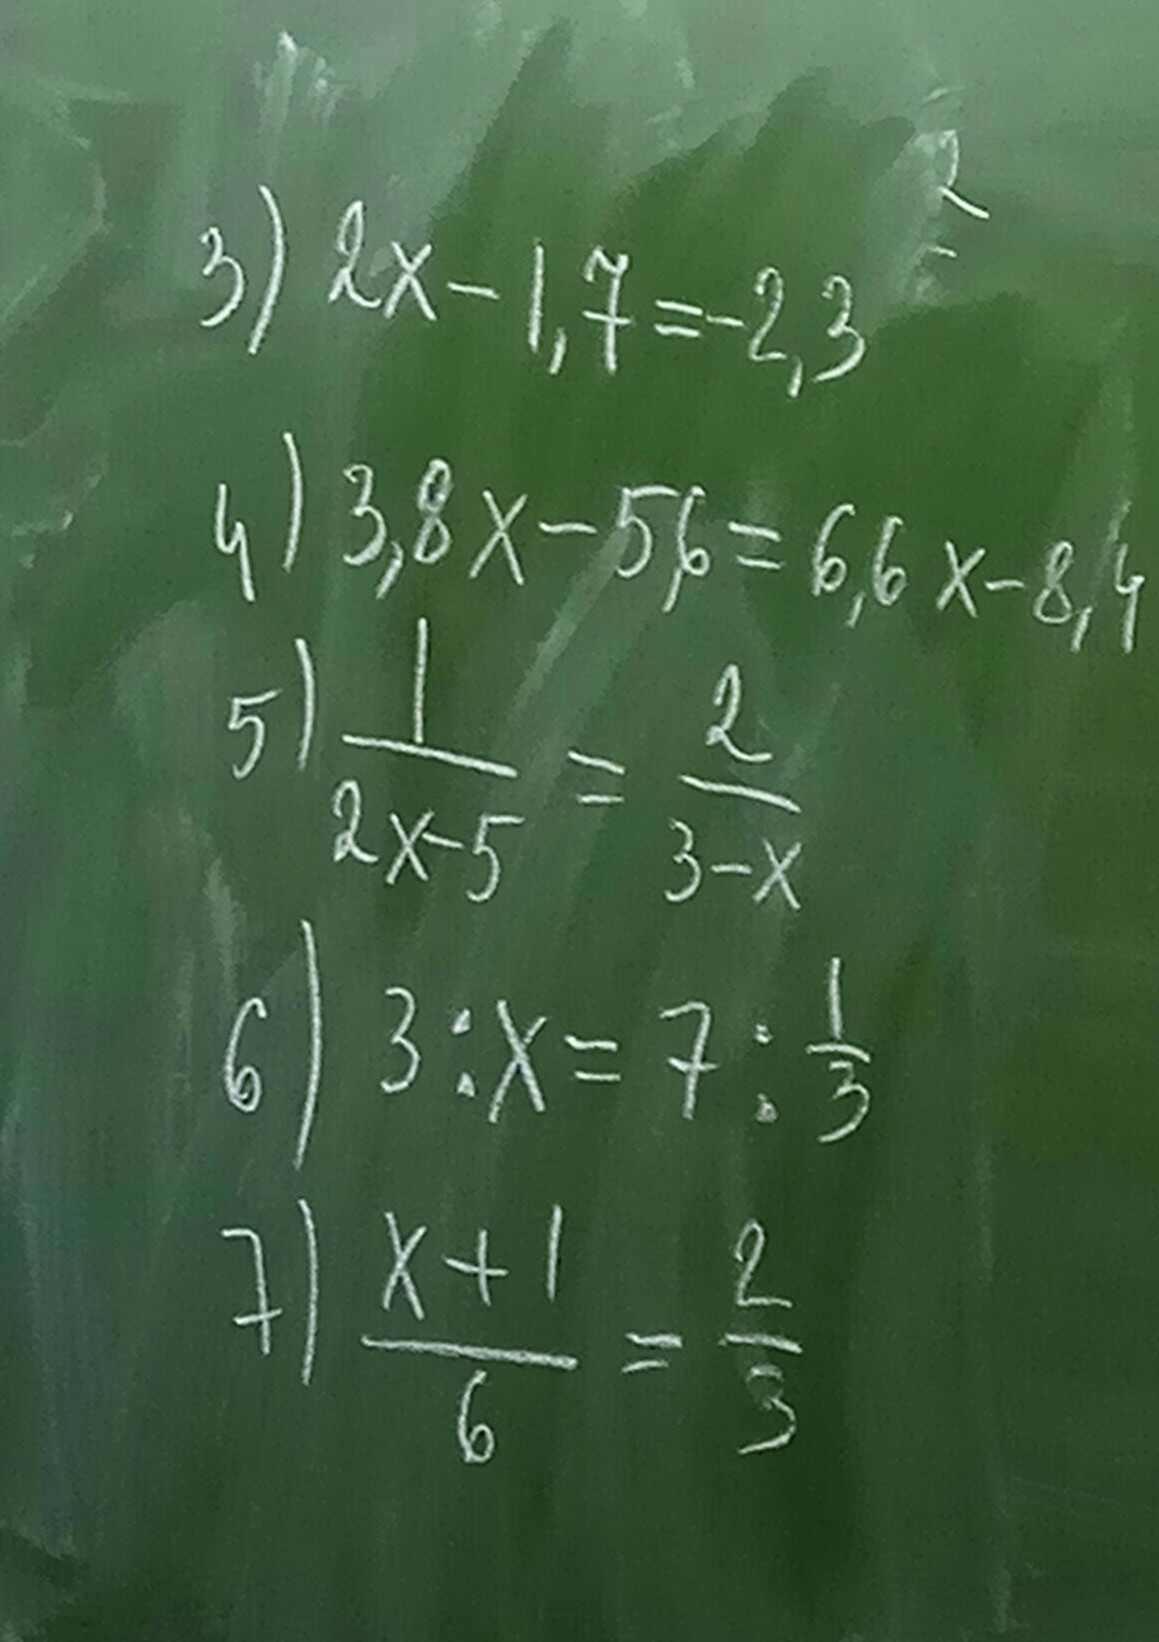 3) 2x-1,7=-2,3
4) 3,8x-5,6=6,6x-8,4
5) 1/(2x-5) = 2/(3-x)
6) 3:x=7:1/3
7) (x+1)/6 = 2/3